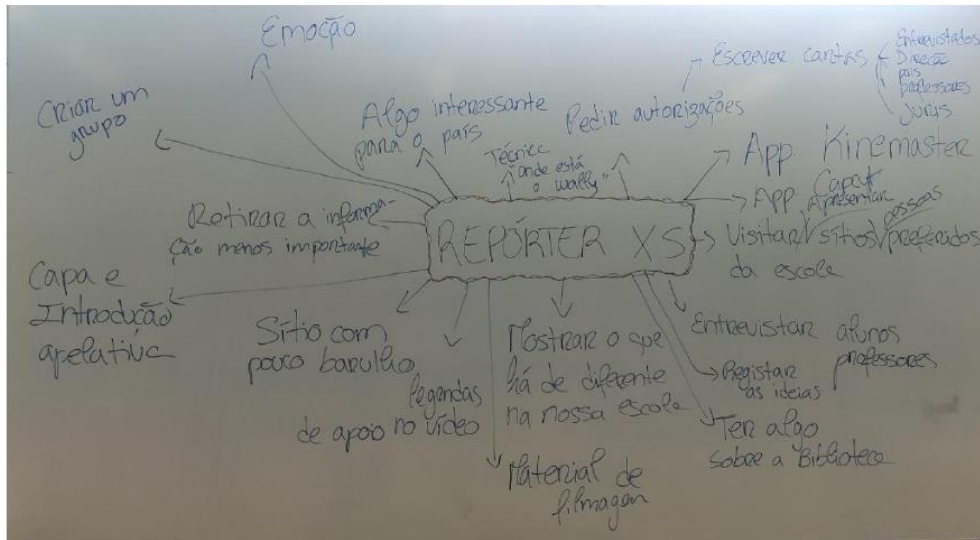 Emoção
Criar um
grupo
Algo interessante
para o país
Pedir autorizações
Escrever cartas
Entrevistados
Direção
pais
professores
Juris
Técnica
"onde está
o wally"
App Kinemaster
App Capcut
Retirar a informa-
ção menos importante
REPÓRTER XS
Apresentar
Visitar/sítios/preferidos
pessoas
da escola
Capa e
Introdução
apelativa
Sítio com
pouco barulho
legendas
de apoio no vídeo
Mostrar o que
há de diferente
na nossa escola
Entrevistar alunos
professores
Registar
as ideias
Ter algo
sobre a Biblioteca
Material de
filmagem